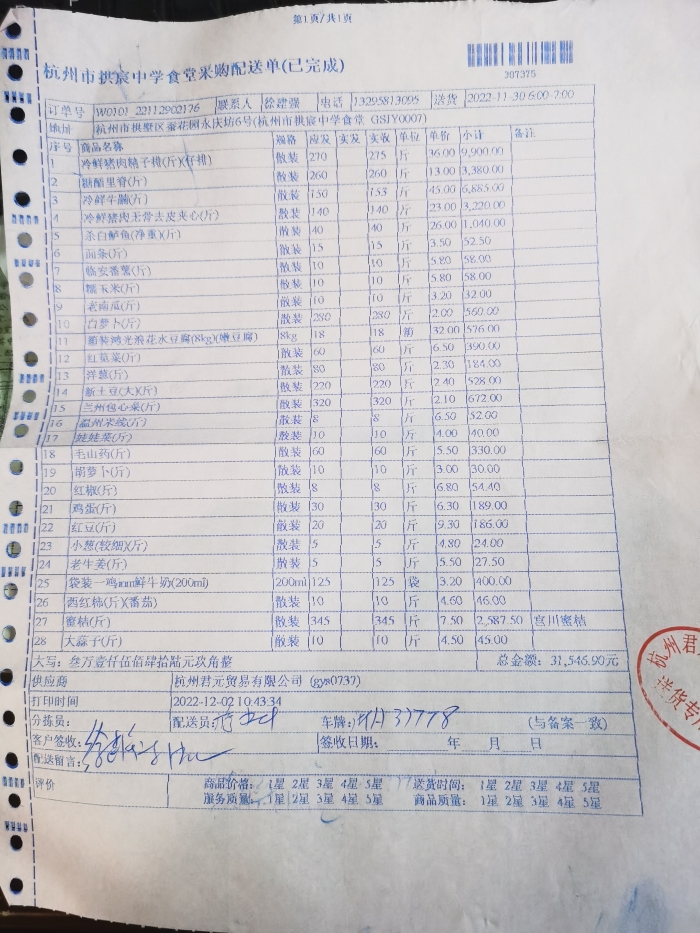 第1页/共1页
杭州市拱宸中学食堂采购配送单(已完成)
307375
订单号 W0101_22112902176 联系人 徐建强 电话 13295813095 送货 2022-11-30 6:00-7:00
地址 杭州市拱墅区蚕花园永庆坊6号(杭州市拱宸中学食堂 GSJY0007)
序号 商品名称 规格 应发 实发 实收 单位 单价 小计 备注
1 冷鲜猪肉精子排(斤)(仔排) 散装 270 275 斤 36.00 9,900.00
2 糖醋里脊(斤) 散装 260 260 斤 13.00 3,380.00
3 冷鲜牛腩(斤) 散装 150 153 斤 45.00 6,885.00
4 冷鲜猪肉无骨去皮夹心(斤) 散装 140 140 斤 23.00 3,220.00
5 杀白鲈鱼(净重)(斤) 散装 40 40 斤 26.00 1,040.00
6 面条(斤) 散装 15 15 斤 3.50 52.50
7 临安番薯(斤) 散装 10 10 斤 5.80 58.00
8 糯玉米(斤) 散装 10 10 斤 5.80 58.00
9 老南瓜(斤) 散装 10 10 斤 3.20 32.00
10 白萝卜(斤) 散装 280 280 斤 2.00 560.00
11 箱装鸿光浪花水豆腐(8kg)(嫩豆腐) 8kg 18 18 箱 32.00 576.00
12 红苋菜(斤) 散装 60 60 斤 6.50 390.00
13 洋葱(斤) 散装 80 80 斤 2.30 184.00
14 新土豆(大)(斤) 散装 220 220 斤 2.40 528.00
15 兰州包心菜(斤) 散装 320 320 斤 2.10 672.00
16 温州米线(斤) 散装 8 8 斤 6.50 52.00
17 娃娃菜(斤) 散装 10 10 斤 4.00 40.00
18 毛山药(斤) 散装 60 60 斤 5.50 330.00
19 胡萝卜(斤) 散装 10 10 斤 3.00 30.00
20 红椒(斤) 散装 8 8 斤 6.80 54.40
21 鸡蛋(斤) 散装 30 30 斤 6.30 189.00
22 红豆(斤) 散装 20 20 斤 9.30 186.00
23 小葱(较细)(斤) 散装 5 5 斤 4.80 24.00
24 老生姜(斤) 散装 5 5 斤 5.50 27.50
25 袋装一鸣mm鲜牛奶(200ml) 200ml 125 125 袋 3.20 400.00
26 西红柿(斤)(番茄) 散装 10 10 斤 4.60 46.00
27 蜜桔(斤) 散装 345 345 斤 7.50 2,587.50 宫川蜜桔
28 大蒜子(斤) 散装 10 10 斤 4.50 45.00
大写: 叁万壹仟伍佰肆拾陆元玖角整 总金额: 31,546.90元
供应商 杭州君元贸易有限公司 (gys0737)
打印时间 2022-12-02 10:43:34
分拣员: 配送员: 车牌: 33778 (与备案一致)
客户签收: 签收日期: 年 月 日
配送留言:
评价 商品价格: 1星 2星 3星 4星 5星 送货时间: 1星 2星 3星 4星 5星
服务质量: 1星 2星 3星 4星 5星 商品质量: 1星 2星 3星 4星 5星
杭州君
送货专